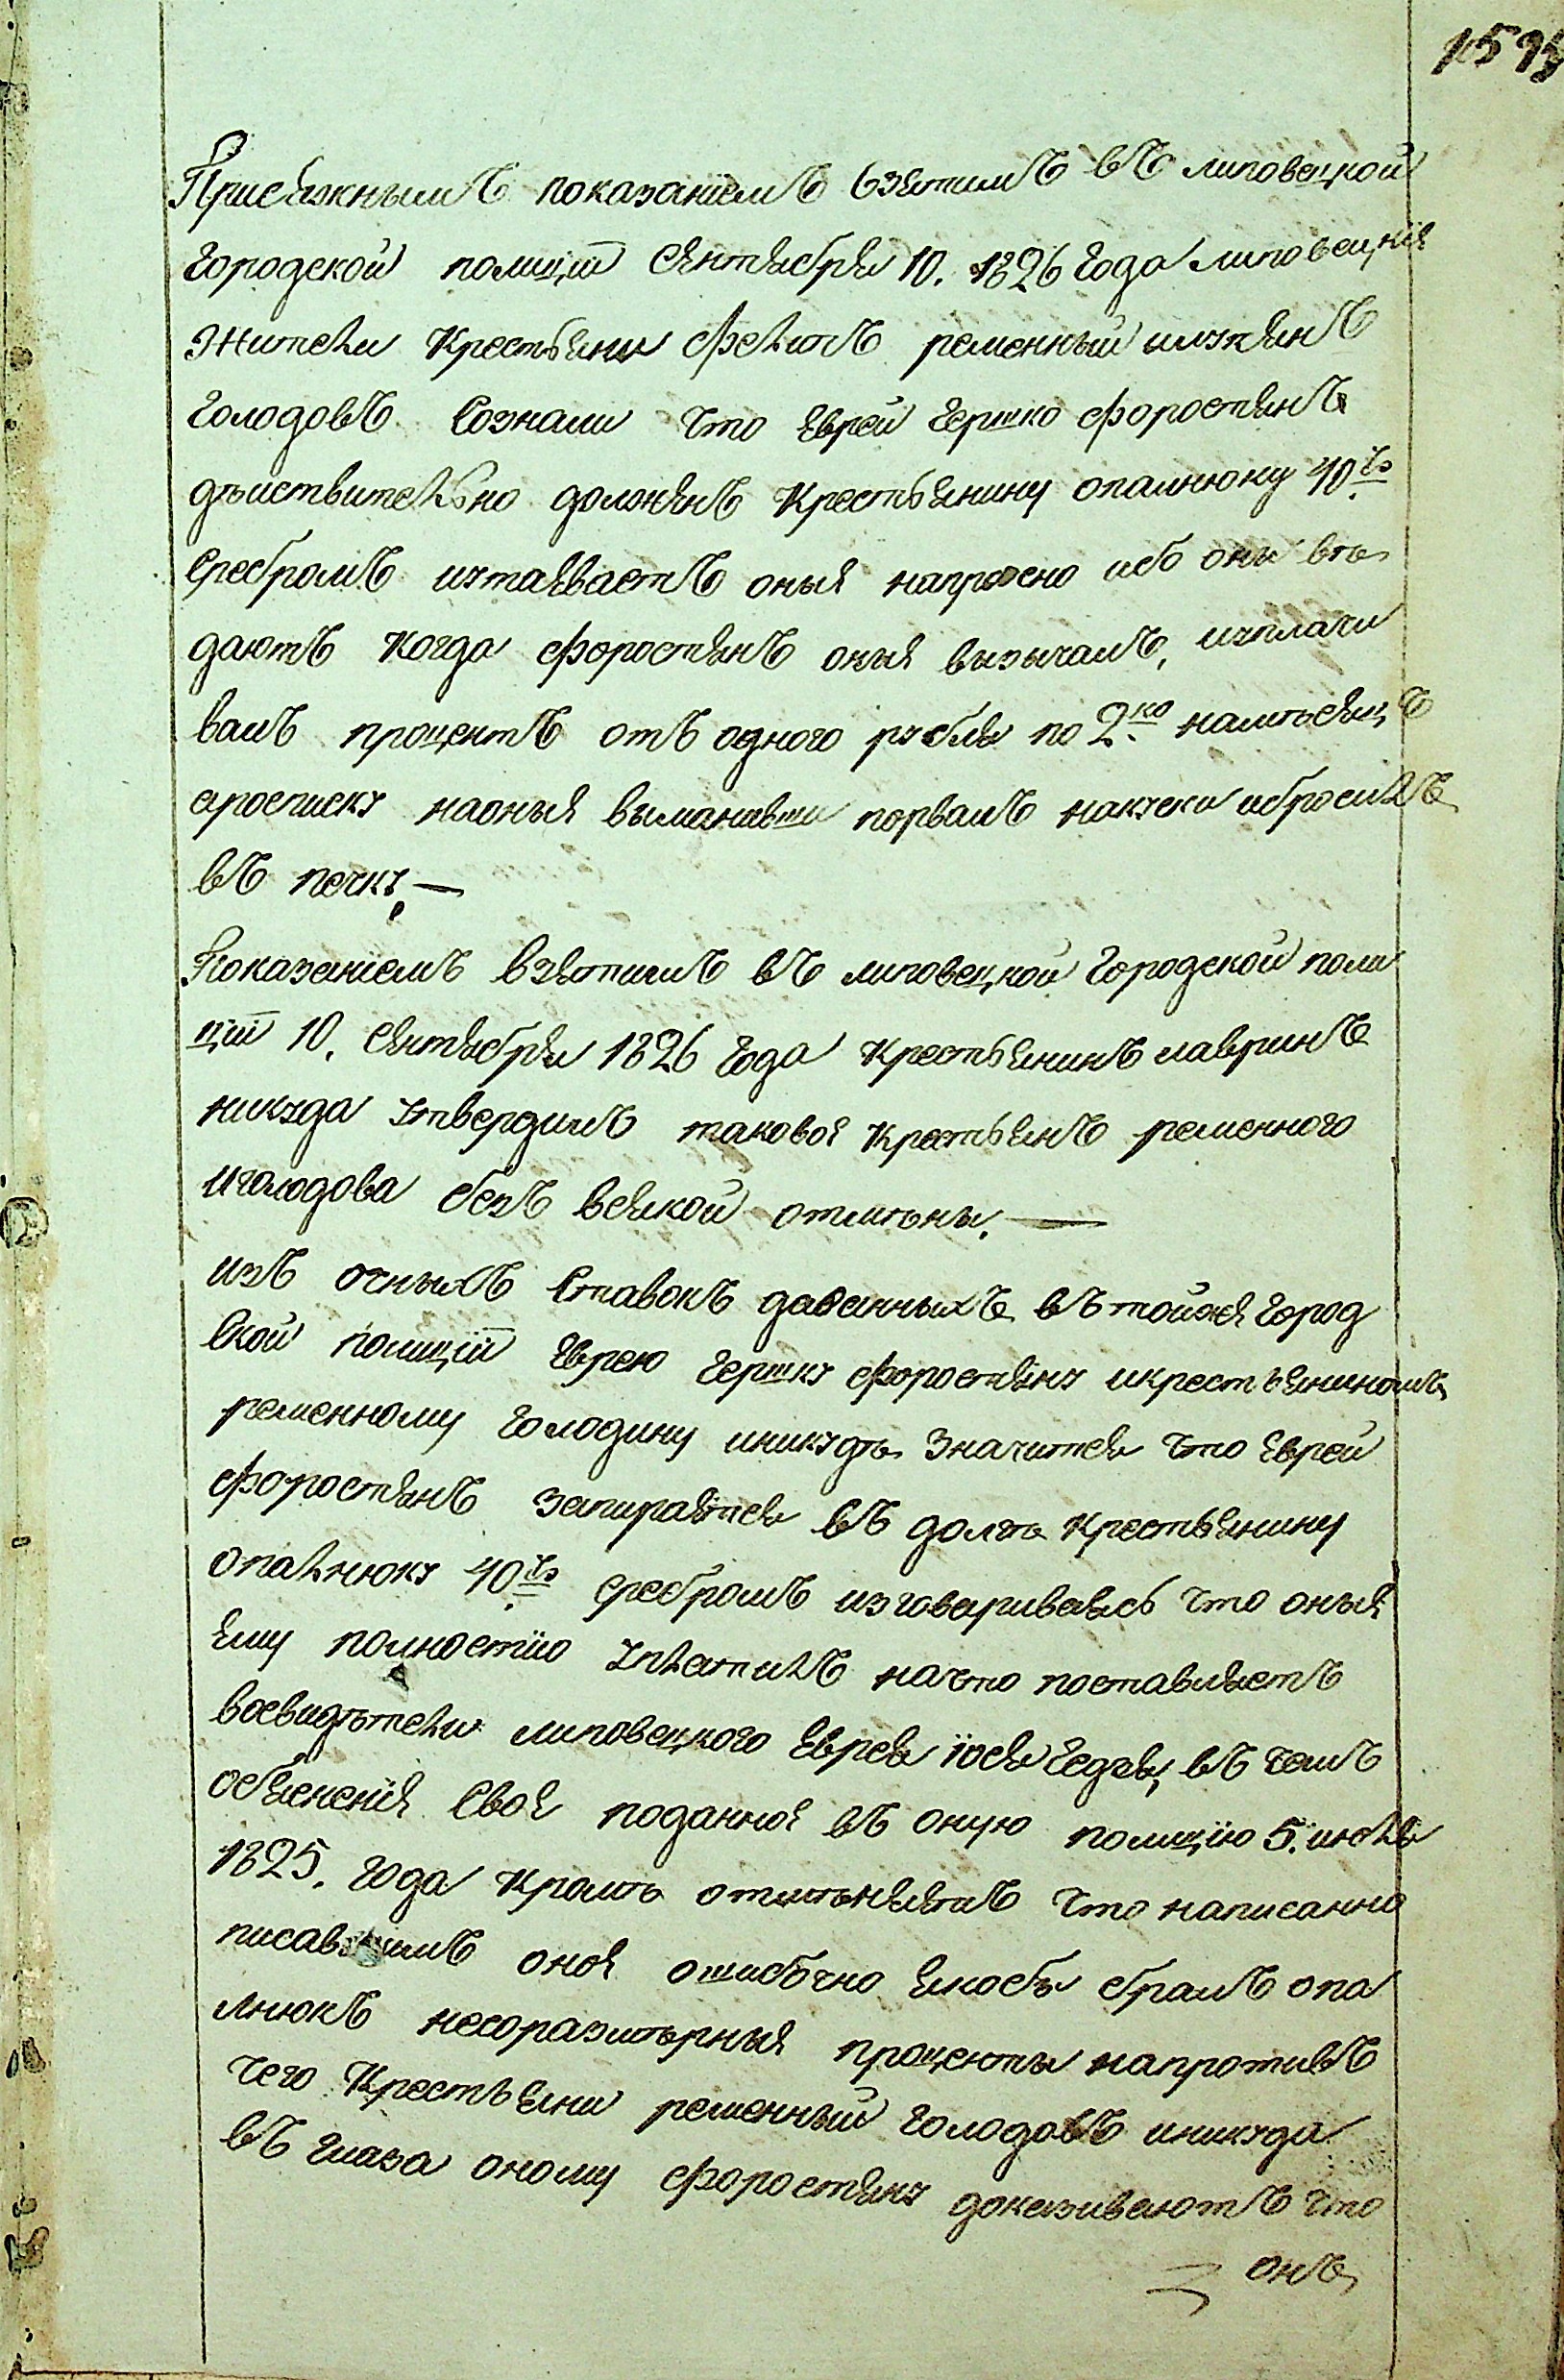 159
Присяжнымъ показанїемъ взятимъ въ липовецкой
городской полицїи сентября 10. 1826 года липовецкїя
жители крестьяни Филипъ ременный илукянъ
голодовъ сознали что еврей гершко Форостянъ
дѣиствительно долженъ крестьянину опалнюку 40 чр
сребромъ иутаеваетъ оныя напрасно ибо они вѣ
даютъ когда Форостянъ оныя визычалъ, иуплачи
валъ процентъ отъ одного рубля по 2ко намѣсяцъ
аросписку наоныя выманивши порвалъ накуски ибросилъ
въ печку,—
Показанїемъ взятимъ въ липовецкой городской поли
цїи 10. сентября 1826 года крестьянинъ лавринъ
никуда утвердилъ таковоя крестьянъ ременного
иголодова безъ всякой отмѣны.—
изъ очныхъ ставокъ даванныхъ въ тойже город
ской полицїи еврею гершку Форостяну икрестьяниномъ
ременному голодину иникудѣ значится что еврей
Форостянъ запирается въ долгѣ крестьянину
опалнюку 40 чр сребромъ изговариваясь что оныя
ему полностїю уплатилъ начто поставляетъ
восвидѣтели липовецкого еврея їося гедзя, въ чемъ
объясненїя своя поданноя въ оную полицїю 5. июля
1825. года кромѣ отмѣняетъ что написанно
писавшимъ оноя ошибочно якобы бралъ опа
лнюкъ несоразмѣрныя проценты напротивъ
чего крестьяни ременный голодовъ иникуда
въ глаза оному Форостяну доказиваютъ что
онъ